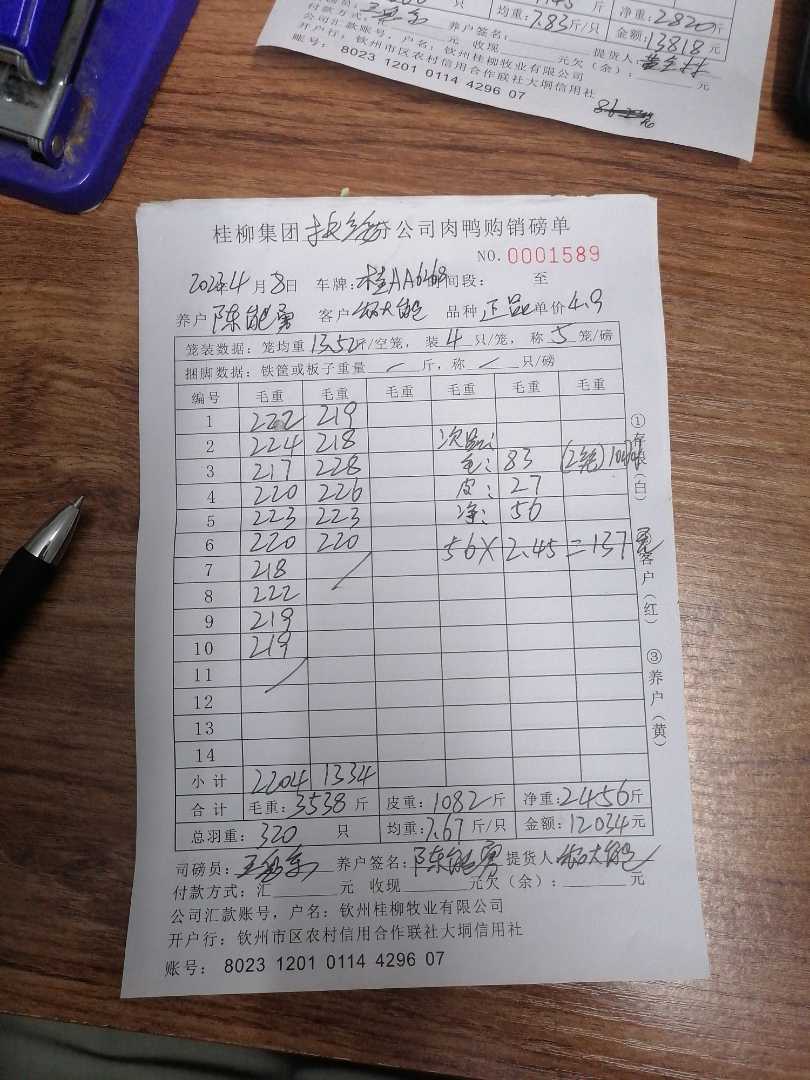 只 均重:7.83斤/只 净重:2820斤
付款方式: 元 养户签名: 金额:13818元
公司汇款账号,户名:钦州桂柳牧业有限公司 提货人:
开户行:钦州市区农村信用合作联社大垌信用社
元 收现 元欠(余): 元
账号: 8023 1201 0114 4296 07
桂柳集团 分公司肉鸭购销磅单
NO. 0001589
4月8日 车牌:桂AA6268 时间段: 至
养户 陈能勇 客户 品种 正品 单价 4.9
笼装数据:笼均重13.52斤/空笼,装4只/笼,称5笼/磅
捆脚数据:铁筐或板子重量 / 斤,称 / 只/磅
编号 毛重 毛重 毛重 毛重 毛重 毛重
1 222 219
2 224 218 次品:
3 217 228 毛: 83 (2笼)
4 220 226 皮: 27
5 223 223 净: 56
6 220 220 56×2.45=137
7 218
8 222
9 219
10 219
11
12
13
14
小计 2204 1334
合计 毛重:3538斤 皮重:1082斤 净重:2456斤
总羽重:320 只 均重:7.67斤/只 金额:12034元
司磅员: 养户签名:陈能勇 提货人
付款方式:汇 元 收现 元欠(余): 元
公司汇款账号,户名:钦州桂柳牧业有限公司
开户行:钦州市区农村信用合作联社大垌信用社
账号: 8023 1201 0114 4296 07
①存根(白)
客户(红)
③养户(黄)